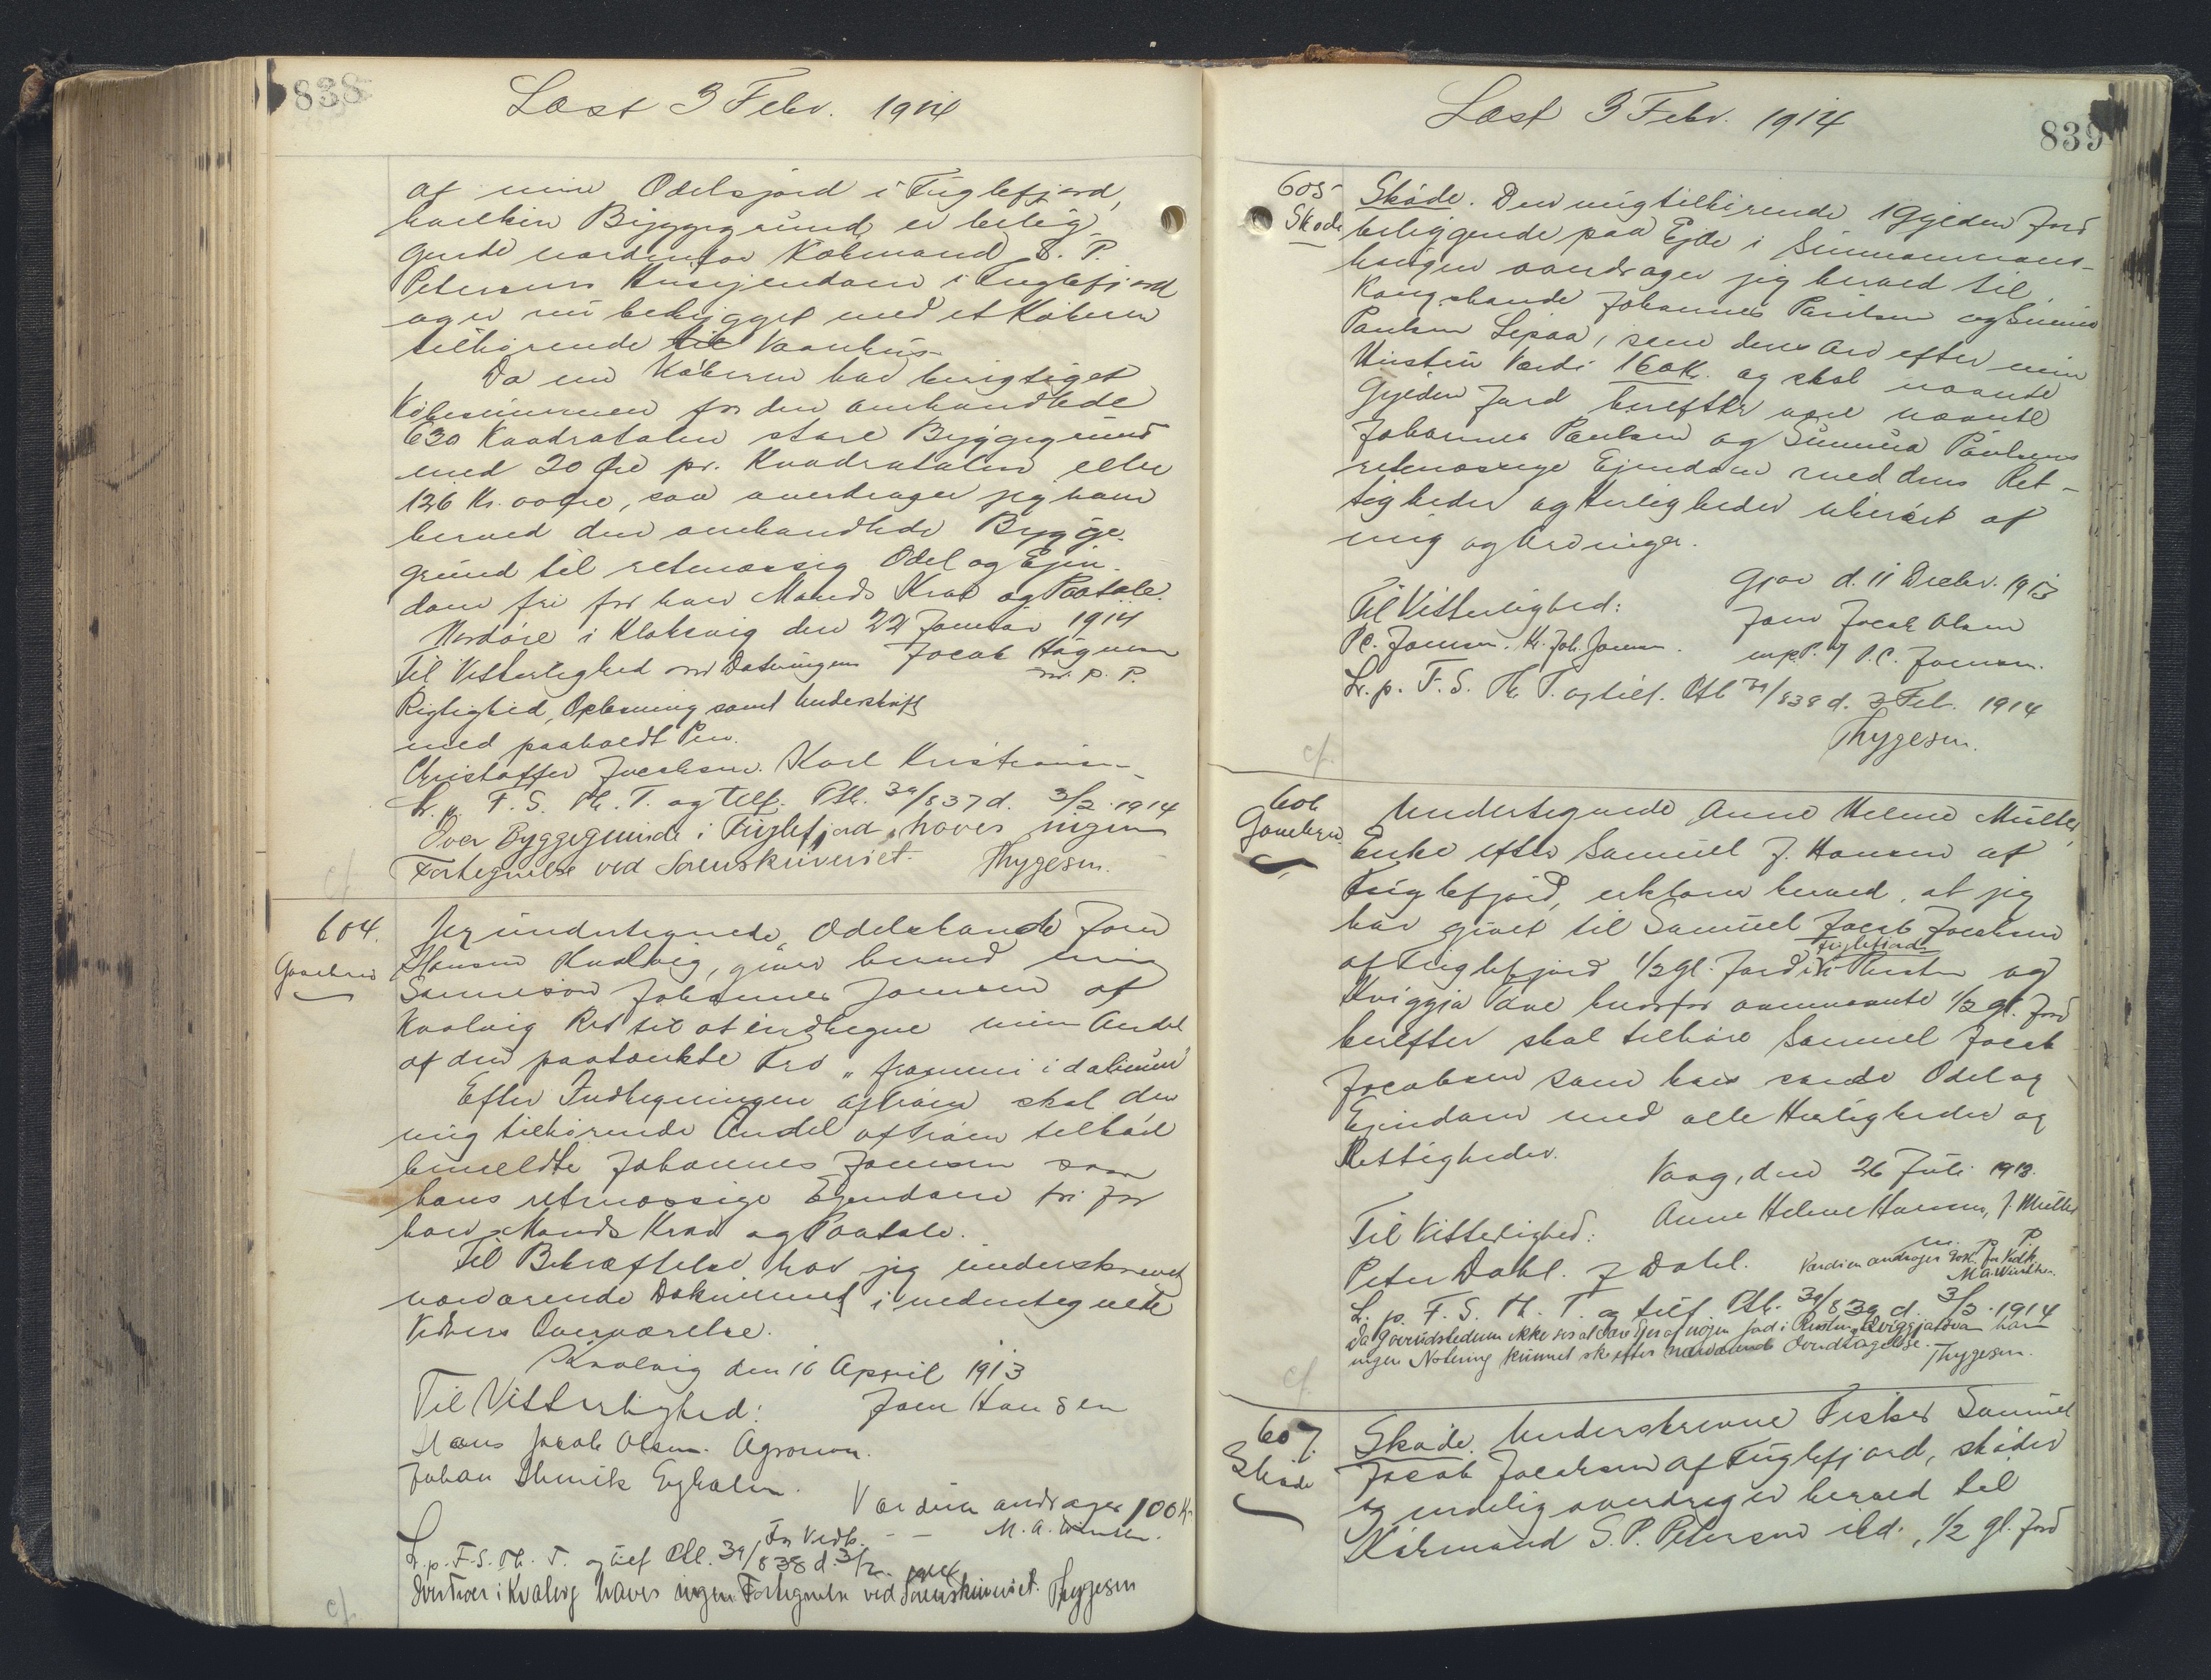 838
Læst 3 Febr. 1914
af min Odelsjord i Fuglefjord,
hvilken Byggegrund er belig-
gende nordenfor Købmand S. P.
Petersens Husejendom i Fuglefjord
og er nu bebygget med et Køberen
tilhørende til Vaanhus
Da nu Køberen har berigtiget
Købesummen for den omhandlede
630 Kvadratalen store Byggegrund
med 20 Øre pr. Kvadratalen eller
126 Kr. 00 Øre, saa overdrager jeg ham
herved den omhandlede Bygge-
grund til retmæssig Odel og Ejen-
dom fri for hver Mands Krav og Paatale.
Nordøre i Klaksvig den 22 Januar 1914
Til Vitterlighed om Dateringens Jocob Høgnesen
Rigtighed, Oplæsning samt Underskrift m. p. P.
med paaholdt Pen.
Christoffer Jocobsen. Karl Kristiansen
Lr. p. F. S. Th. T. og tilf. Ptb. 39/837 d. 3/2. 1914
Over Byggegrunde i Fuglefjord haves ingen
Fortegnelse ved Sorenskriveriet. Thygesen.
cf.
604.
Gavebrev
Jeg undertegnede Odelsbonde Joen
Hansen Kvalvig, giver herved min
Sønnesøn Johannes Joensen af
Kvalvig Ret til at indhegne min Andel
af den paatænkte Trø "frammi i dalinum"
Efter Indhegningen af Trøen skal den
mig tilhørende Andel af Trøen tilhøre
bemeldte Johannes Joensen som
hans retmæssige Ejendom fri for
hver Mands Krav og Paatale.
Til Bekræftelse har jeg underskrevet
nærværende Dokument i nedentegnede
Vidners Overværelse.
Kvalvig den 16 April 1913
Til Vitterlighed: Joen Hansen
Hans Jacob Olsen. Agronom.
Johan Henrik Egholm.
Værdien andrager 100 Kr.
For Vedk. - - M. A. Winther.
Lr. p. F. S. Th. T. og tilf. Ptb. 39/838 d. 3/2. 1914
Over Trøer i Kvalvig haves ingen Fortegnelse ved Sorenskriveriet. Thygesen
cf.
Læst 3 Febr. 1914
839
605
Skøde
Skøde. Den mig tilhørende 1 Gylden Jord
beliggende paa Ejde i
haugen overdrager jeg herved til
Kongsbonde Johannes Poulsen og Sunneva
Poulsen Ljosaa, som deres Arv efter min
Hustru Værdi 160 Kr. og skal nævnte
Gylden Jord herefter være nævnte
Johannes Poulsen og Sunneva Poulsens
retmæssige Ejendom med dens Ret-
tigheder og Herligheder ubehæftet af
mig og Arvinger.
Gjov d. 11 Decbr. 1913
Til Vitterlighed: Joen Jocob Olsen
P. C. Joensen. Kr. Joh. Joensen. m. p. P. / P. C. Joensen.
Lr. p. F. S. Th. T. og tilf. Ptb 39/838 d. 3 Feb. 1914
Thygesen.
cf.
606
Gavebrev
Undertegnede Anne Helene Müller,
Enke efter Samuel J. Hansen af
Fuglefjord, erklærer herved, at jeg
har givet til Samuel Jacob Jocobsen
Fuglefjords
af Fuglefjord 1/2 gl. Jord i Rusten og
Kviggjaráve hvorfor ovennævnte 1/2 gl. Jord
herefter skal tilhøre Samuel Jacob
Jocobsen som hans sande Odel og
Ejendom med alle Herligheder og
Rettigheder.
Vaag, den 26 Juli 1913.
Til Vitterlighed: Anne Helene Hansen, f. Müller
m. p. P.
Peter Dahl. J Dahl. Værdien andrager 90 Kr. For Vedk.
M. A. Winther.
Lr. p. F. S. Th. T. og tilf. Ptb. 39/839 d. 3/2. 1914
Da Gaveudstederen ikke ses at være Ejer af nogen Jord i Rusten og Kviggjaráva har
ingen Notering kunnet ske efter nærværende Overdragelse. Thygesen.
cf.
607.
Skøde
Skøde. Underskrevne Fisker Samuel
Jacob Jocobsen af Fuglefjord, skøder
og endelig overdrager herved til
Købmand S. P. Petersen ibd., 1/2 gl. Jord